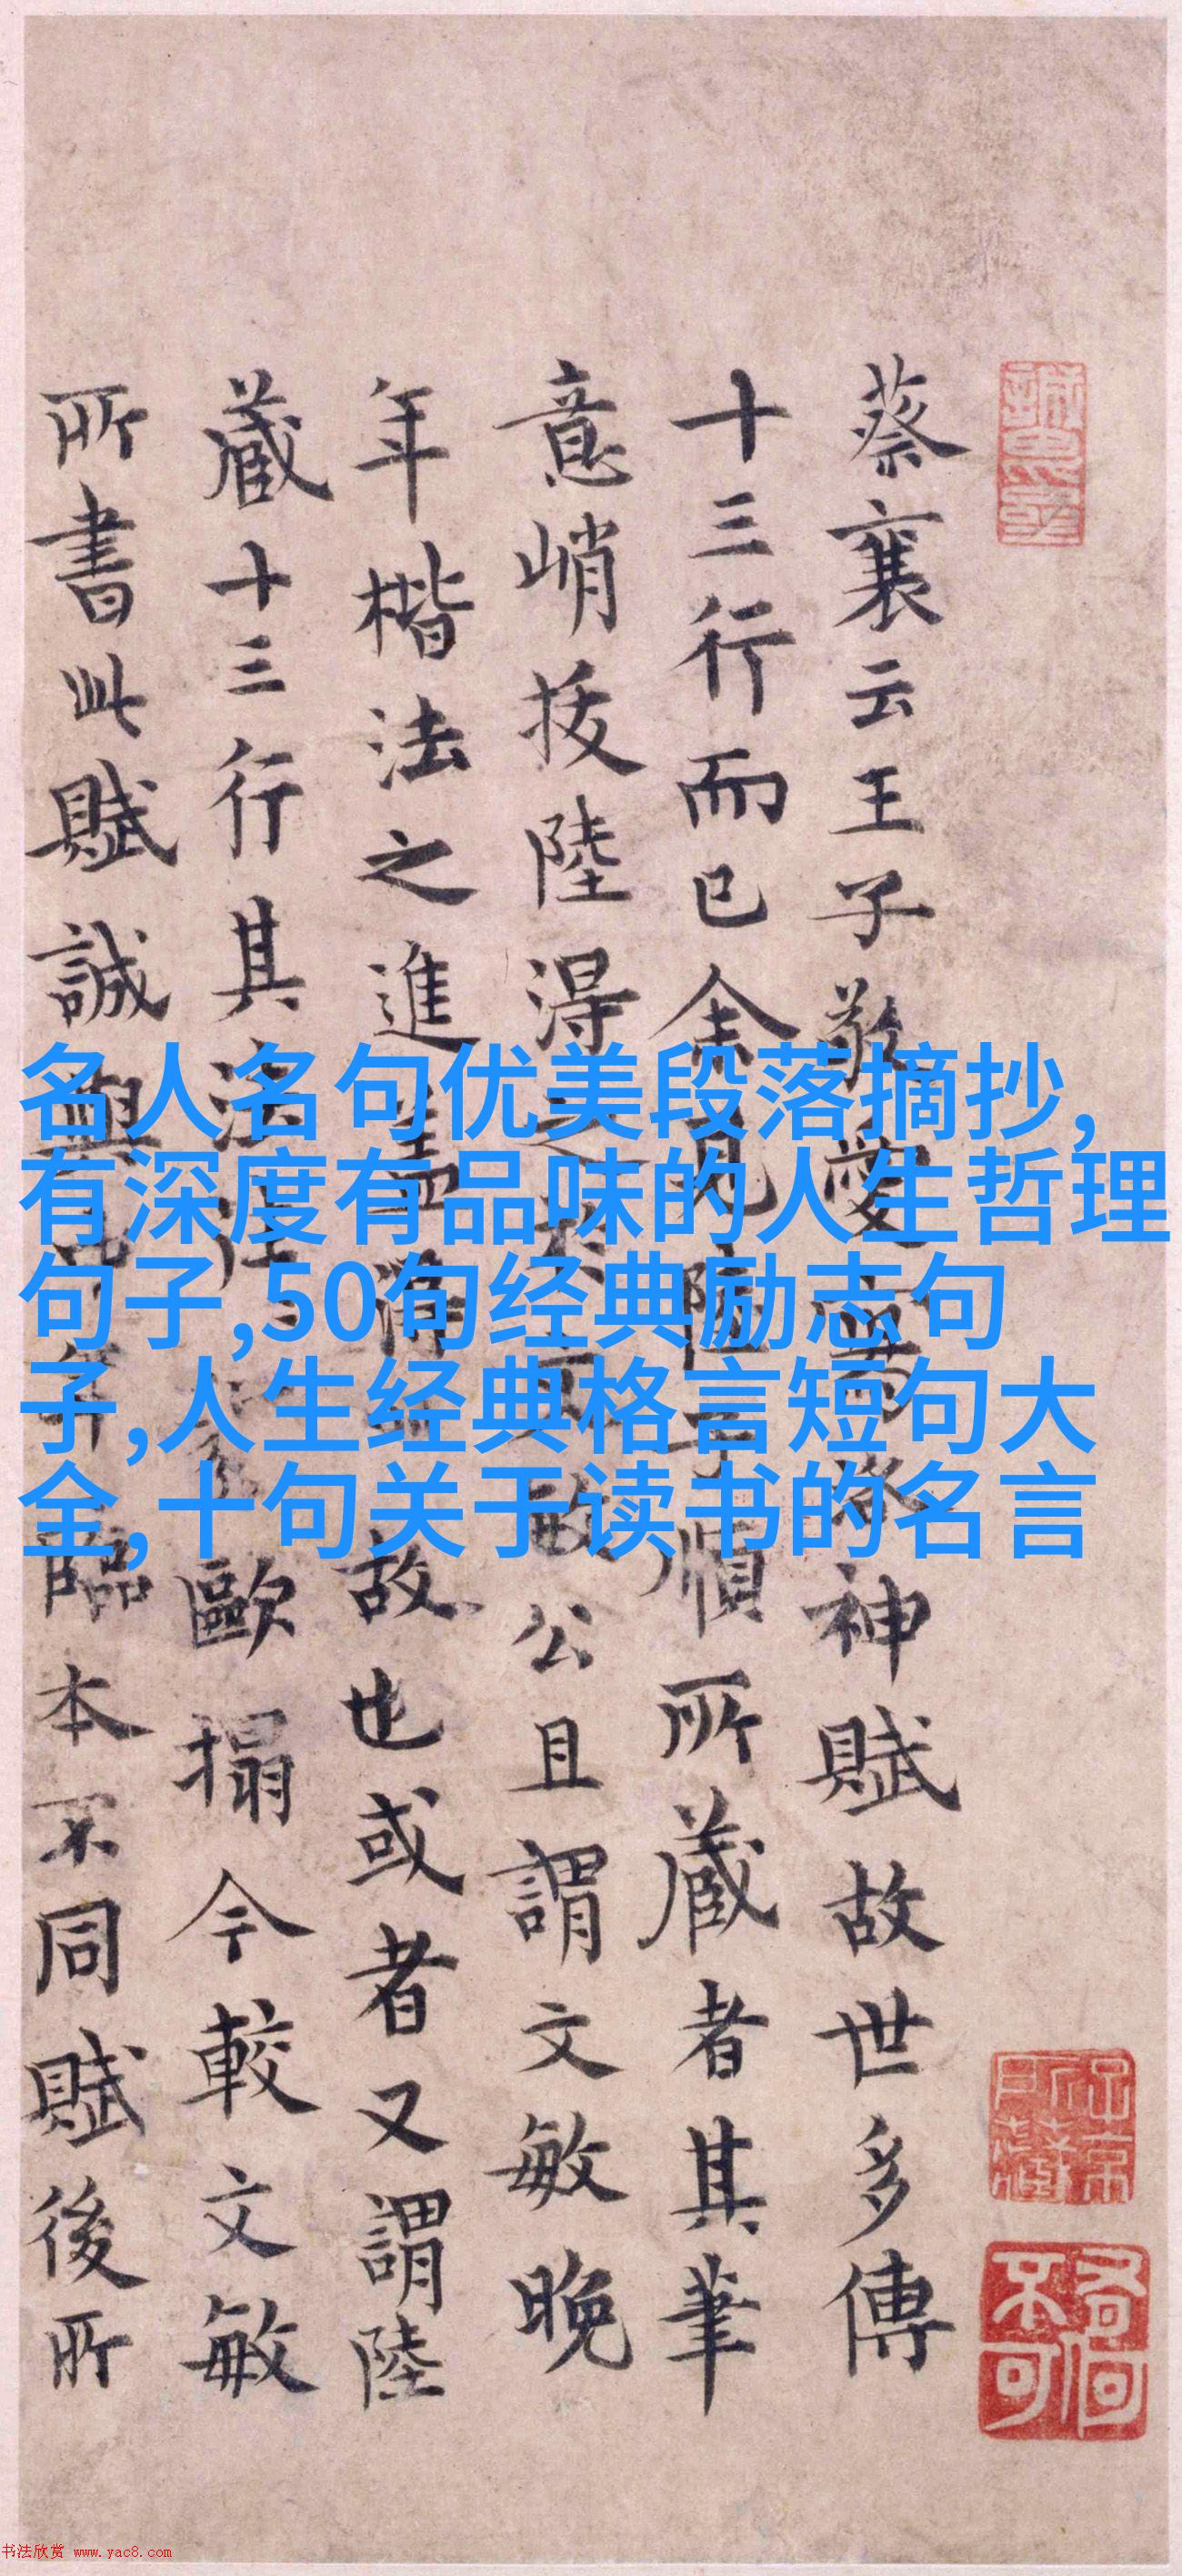 蔡襄云王子敬愛寫洛神賦故世多傳
十三行而已余見陸子順所藏者其筆
意峭拔陸得之於京敏公且謂文敏晚
年楷法之進蓋得此故也或者又謂陸
藏十三行其法往歐搨今較文敏
所書此賦誠與此年臨本不同賦後所
名人名句优美段落摘抄,
有深度有品味的人生哲理
句子,50句经典励志句
子,人生经典格言短句大
全,十句关于读书的名言
书法欣赏 www.yac8.com